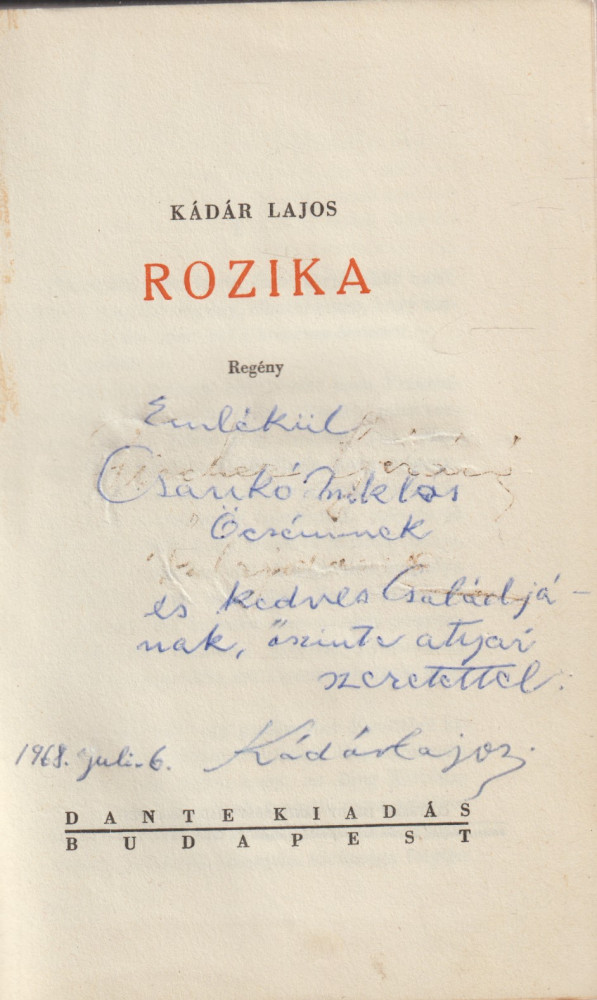 KÁDÁR LAJOS
ROZIKA
Regény
Emlékül
Csankó Miklos
Öcsémnek
és kedves Családjá-
nak, őszinte atyai
szeretettel.
1968. juli. 6. Kádár Lajos.
DANTE KIADÁS
BUDAPEST